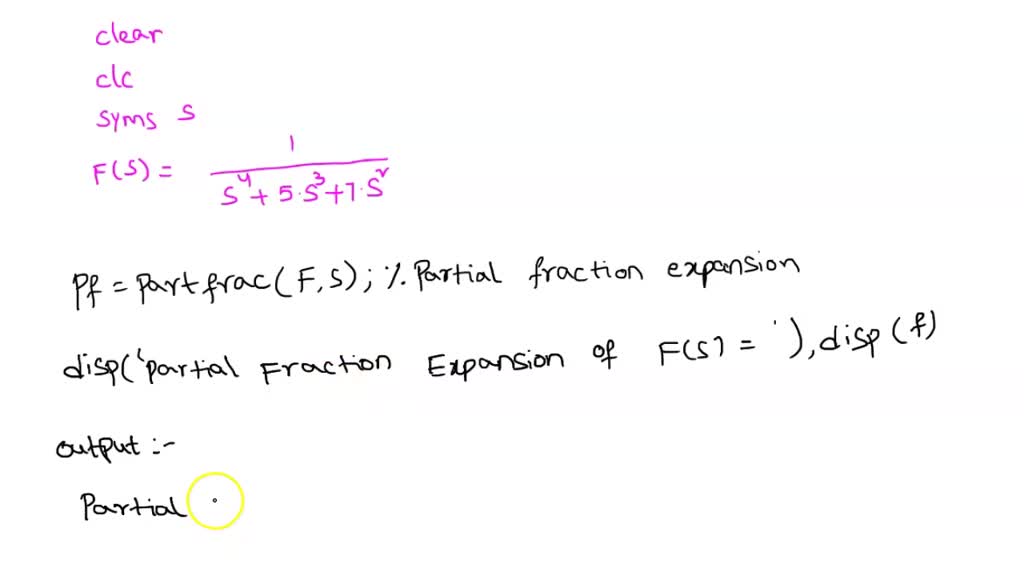 clear
clc
syms s
F(S) = 1 / S^4 + 5·S^3 + 7·S^2
Pf = Partfrac(F,S); % Partial fraction expansion
disp('Partial Fraction Expansion of F(S) = '), disp(f)
output :-
Partial